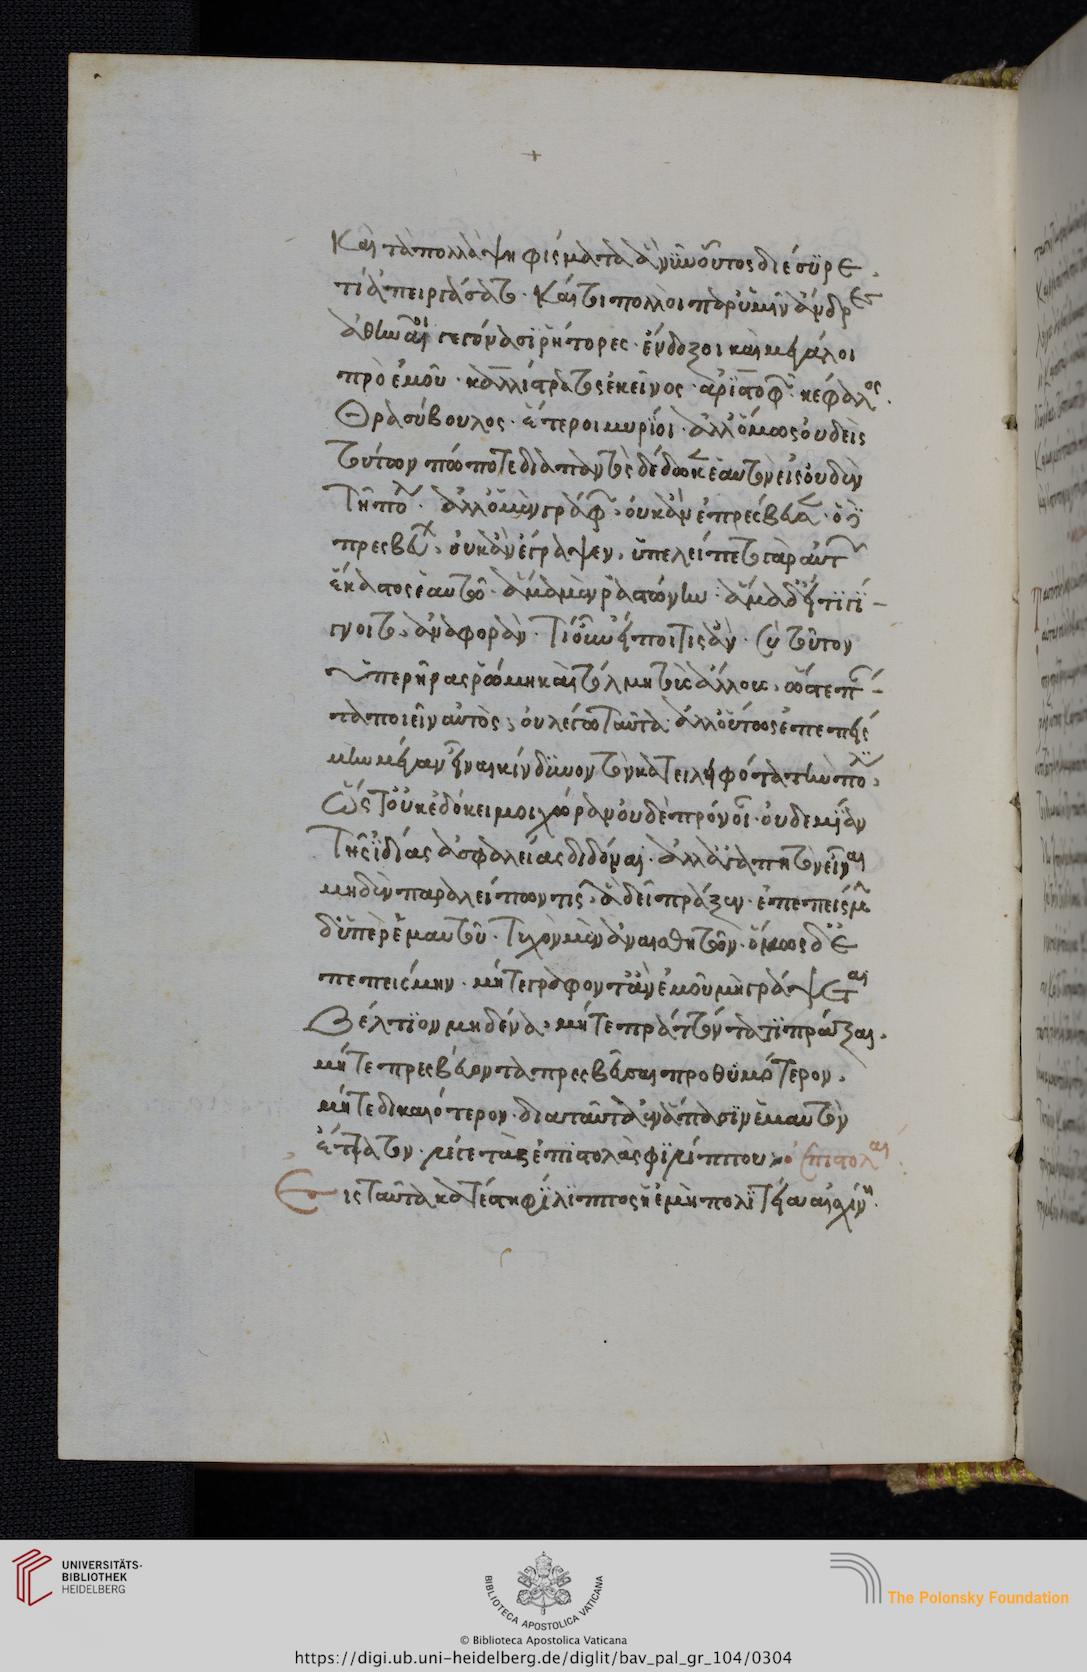 Καὶ τὰ πολλὰ ψηφίσματα ἃ νῦν οὗτος διέσυρε.
τί ἀπειργάσατο. Καίτοι πολλοὶ παρ' ὑμῖν ἄνδρες
ἀθηναῖοι γεγόνασι ῥήτορες· ἔνδοξοι καὶ μεγάλοι
πρὸ ἐμοῦ· καλλίστρατος ἐκεῖνος· ἀριστοφῶν· κέφαλος.
Θρασύβουλος· ἕτεροι μυρίοι· ἀλλ' ὅμως οὐδεὶς
τούτων πώποτε διὰ παντὸς δέδωκεν ἑαυτὸν εἰς οὐδὲν
τῇ πόλει· ἀλλ' ὁ μὲν γράφων, οὐκ ἂν ἐπρέσβευσεν· ὁ δὲ
πρεσβεύων, οὐκ ἂν ἔγραψεν, ὑπέλειπε γὰρ αὐτῶν
ἕκαστος ἑαυτῷ· ἅμα μὲν ῥᾳστώνην· ἅμα δ' εἴ τι γί-
γνοιτο, ἀναφοράν· Τί οὖν εἴποι τις ἄν· σὺ τοσοῦτον
ὑπερῆρας ῥώμῃ καὶ τόλμῃ τοὺς ἄλλους, ὥστε πάν-
τα ποιεῖν αὐτός; οὐ λέγω ταῦτα· ἀλλ' οὕτως ἐπεπείσ
μην μέγαν εἶναι κίνδυνον τὸν κατειληφότα τὴν πόλιν,
ὥστ' οὐκ ἐδόκει μοι χώραν οὐδὲ πρόνοιαν οὐδεμίαν
τῆς ἰδίας ἀσφαλείας διδόναι· ἀλλ' ἀγαπητὸν εἶναι
μηδὲν παραλείπων τις, ἃ δεῖ πράξειεν· ἐπεπείσμην
δ' ὑπὲρ ἐμαυτοῦ· τυχὸν μὲν ἀναισθητῶν· ὅμως δ' ἐ
πεπείσμην· μήτε γράφοντ' ἂν ἐμοῦ μὴ γράψαι
βέλτιον μηδένα, μήτε πράττοντα ἢ πρᾶξαι.
μήτε πρεσβεύοντα πρεσβεῦσαι προθυμότερον,
μήτε δικαιότερον· διὰ ταῦτα ἐν ἅπασιν ἐμαυτὸν
ἔταττον· λέγε τὰς ἐπιστολὰς φιλίππου· ἐπιστολαί
Εἰς ταῦτα κατέστησε φίλιππον ἡ ἐμὴ πολιτεία αἰσχίνη.
UNIVERSITÄTS-
BIBLIOTHEK
HEIDELBERG
BIBLIOTECA APOSTOLICA VATICANA
The Polonsky Foundation
© Biblioteca Apostolica Vaticana
https://digi.ub.uni-heidelberg.de/diglit/bav_pal_gr_104/0304